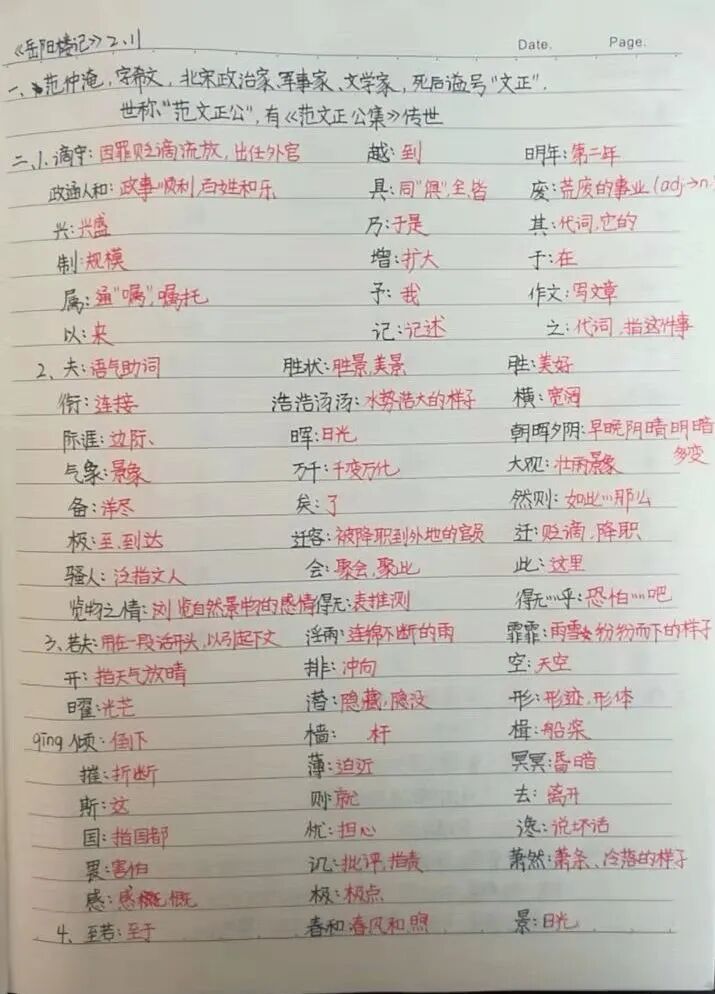 《岳阳楼记》2.11
Date. Page.
一、范仲淹，字希文，北宋政治家、军事家、文学家，死后谥号"文正".
世称"范文正公"，有《范文正公集》传世
二、1.谪守：因罪贬谪流放，出任外官 越：到 明年：第二年
政通人和：政事顺利，百姓和乐 具：同"俱"，全，皆 废：荒废的事业(adj→n.
兴：兴盛 乃：于是 其：代词，它的
制：规模 增：扩大 于：在
属：通"嘱"，嘱托 予：我 作文：写文章
以：来 记：记述 之：代词，指这件事
2、夫：语气助词 胜状：胜景，美景 胜：美好
衔：连接 浩浩汤汤：水势浩大的样子 横：宽阔
际涯：边际、 晖：日光 朝晖夕阴：早晚阴晴明暗
多变
气象：景象 万千：千变万化 大观：壮丽景象
备：详尽 矣：了 然则：如此…那么
极：至，到达 迁客：被降职到外地的官员 迁：贬谪，降职
骚人：泛指文人 会：聚会，聚此 此：这里
览物之情：浏览自然景物的感情 得无：表推测 得无…乎：恐怕…吧
3、若夫：用在一段话开头，以引起下文 淫雨：连绵不断的雨 霏霏：雨雪纷纷而下的样子
开：指天气放晴 排：冲向 空：天空
曜：光芒 潜：隐藏，隐没 形：形迹，形体
qīng 倾：倒下 樯： 杆 楫：船桨
摧：折断 薄：迫近 冥冥：昏暗
斯：这 则：就 去：离开
国：指国都 忧：担心 谗：说坏话
畏：害怕 讥：批评，指责 萧然：萧条、冷落的样子
感：感慨 极：极点
4、至若：至于 春和：春风和煦 景：日光